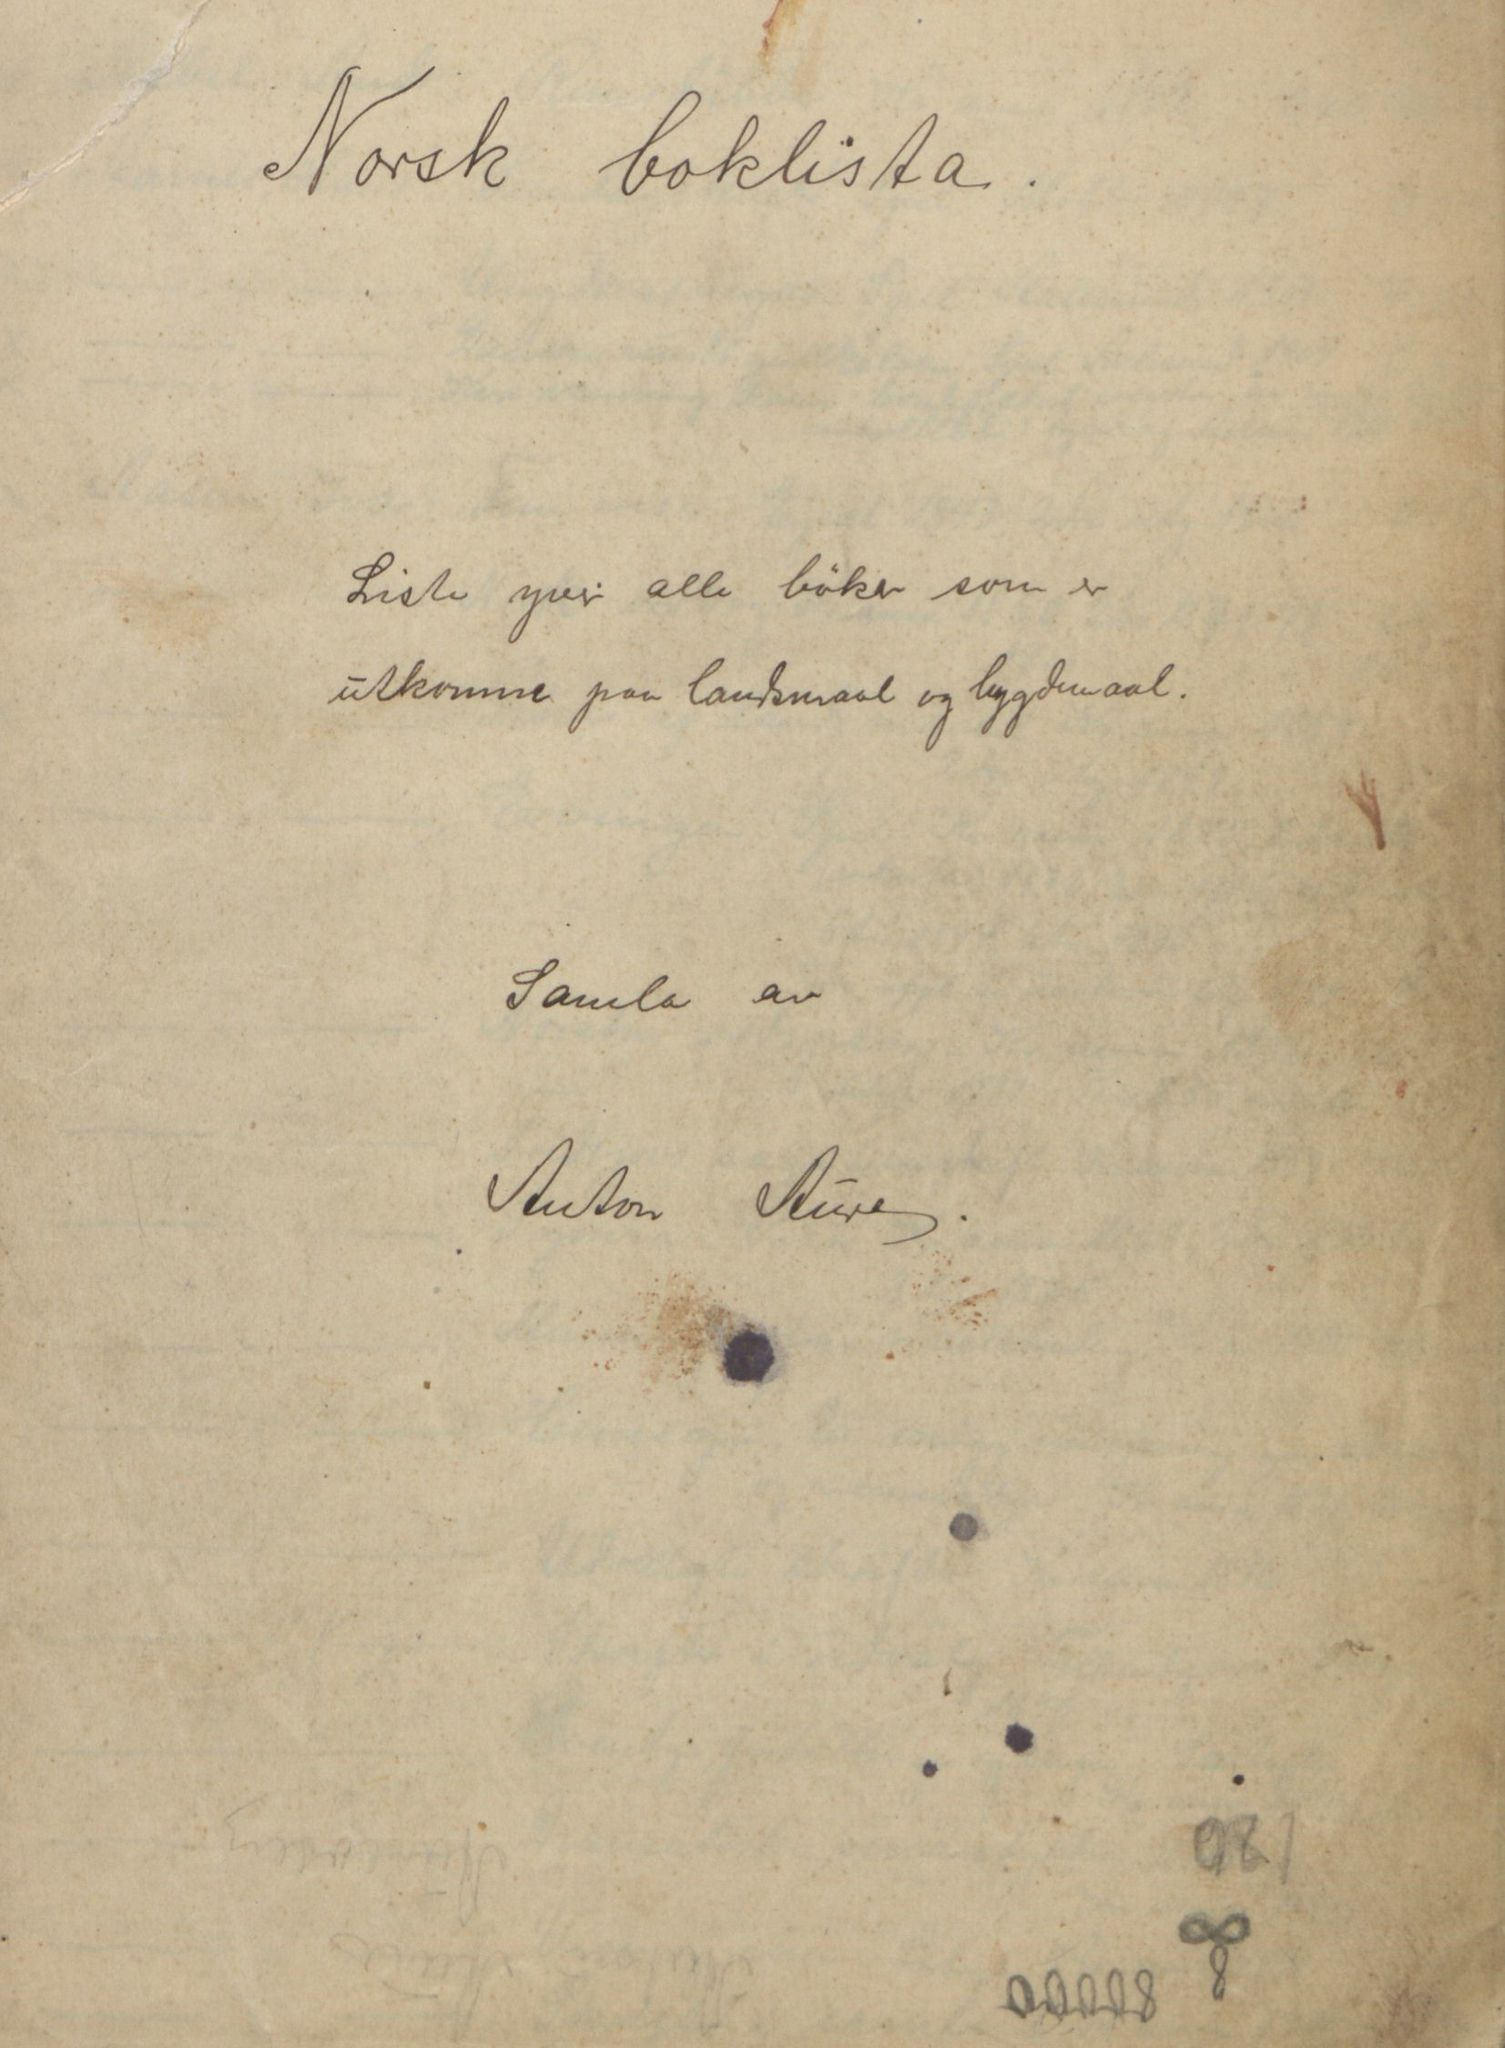 Norsk boklista.
Liste yver alle böker som er
utkomne paa landsmaal og bygdemaal.
Samla av
Anton Aure.